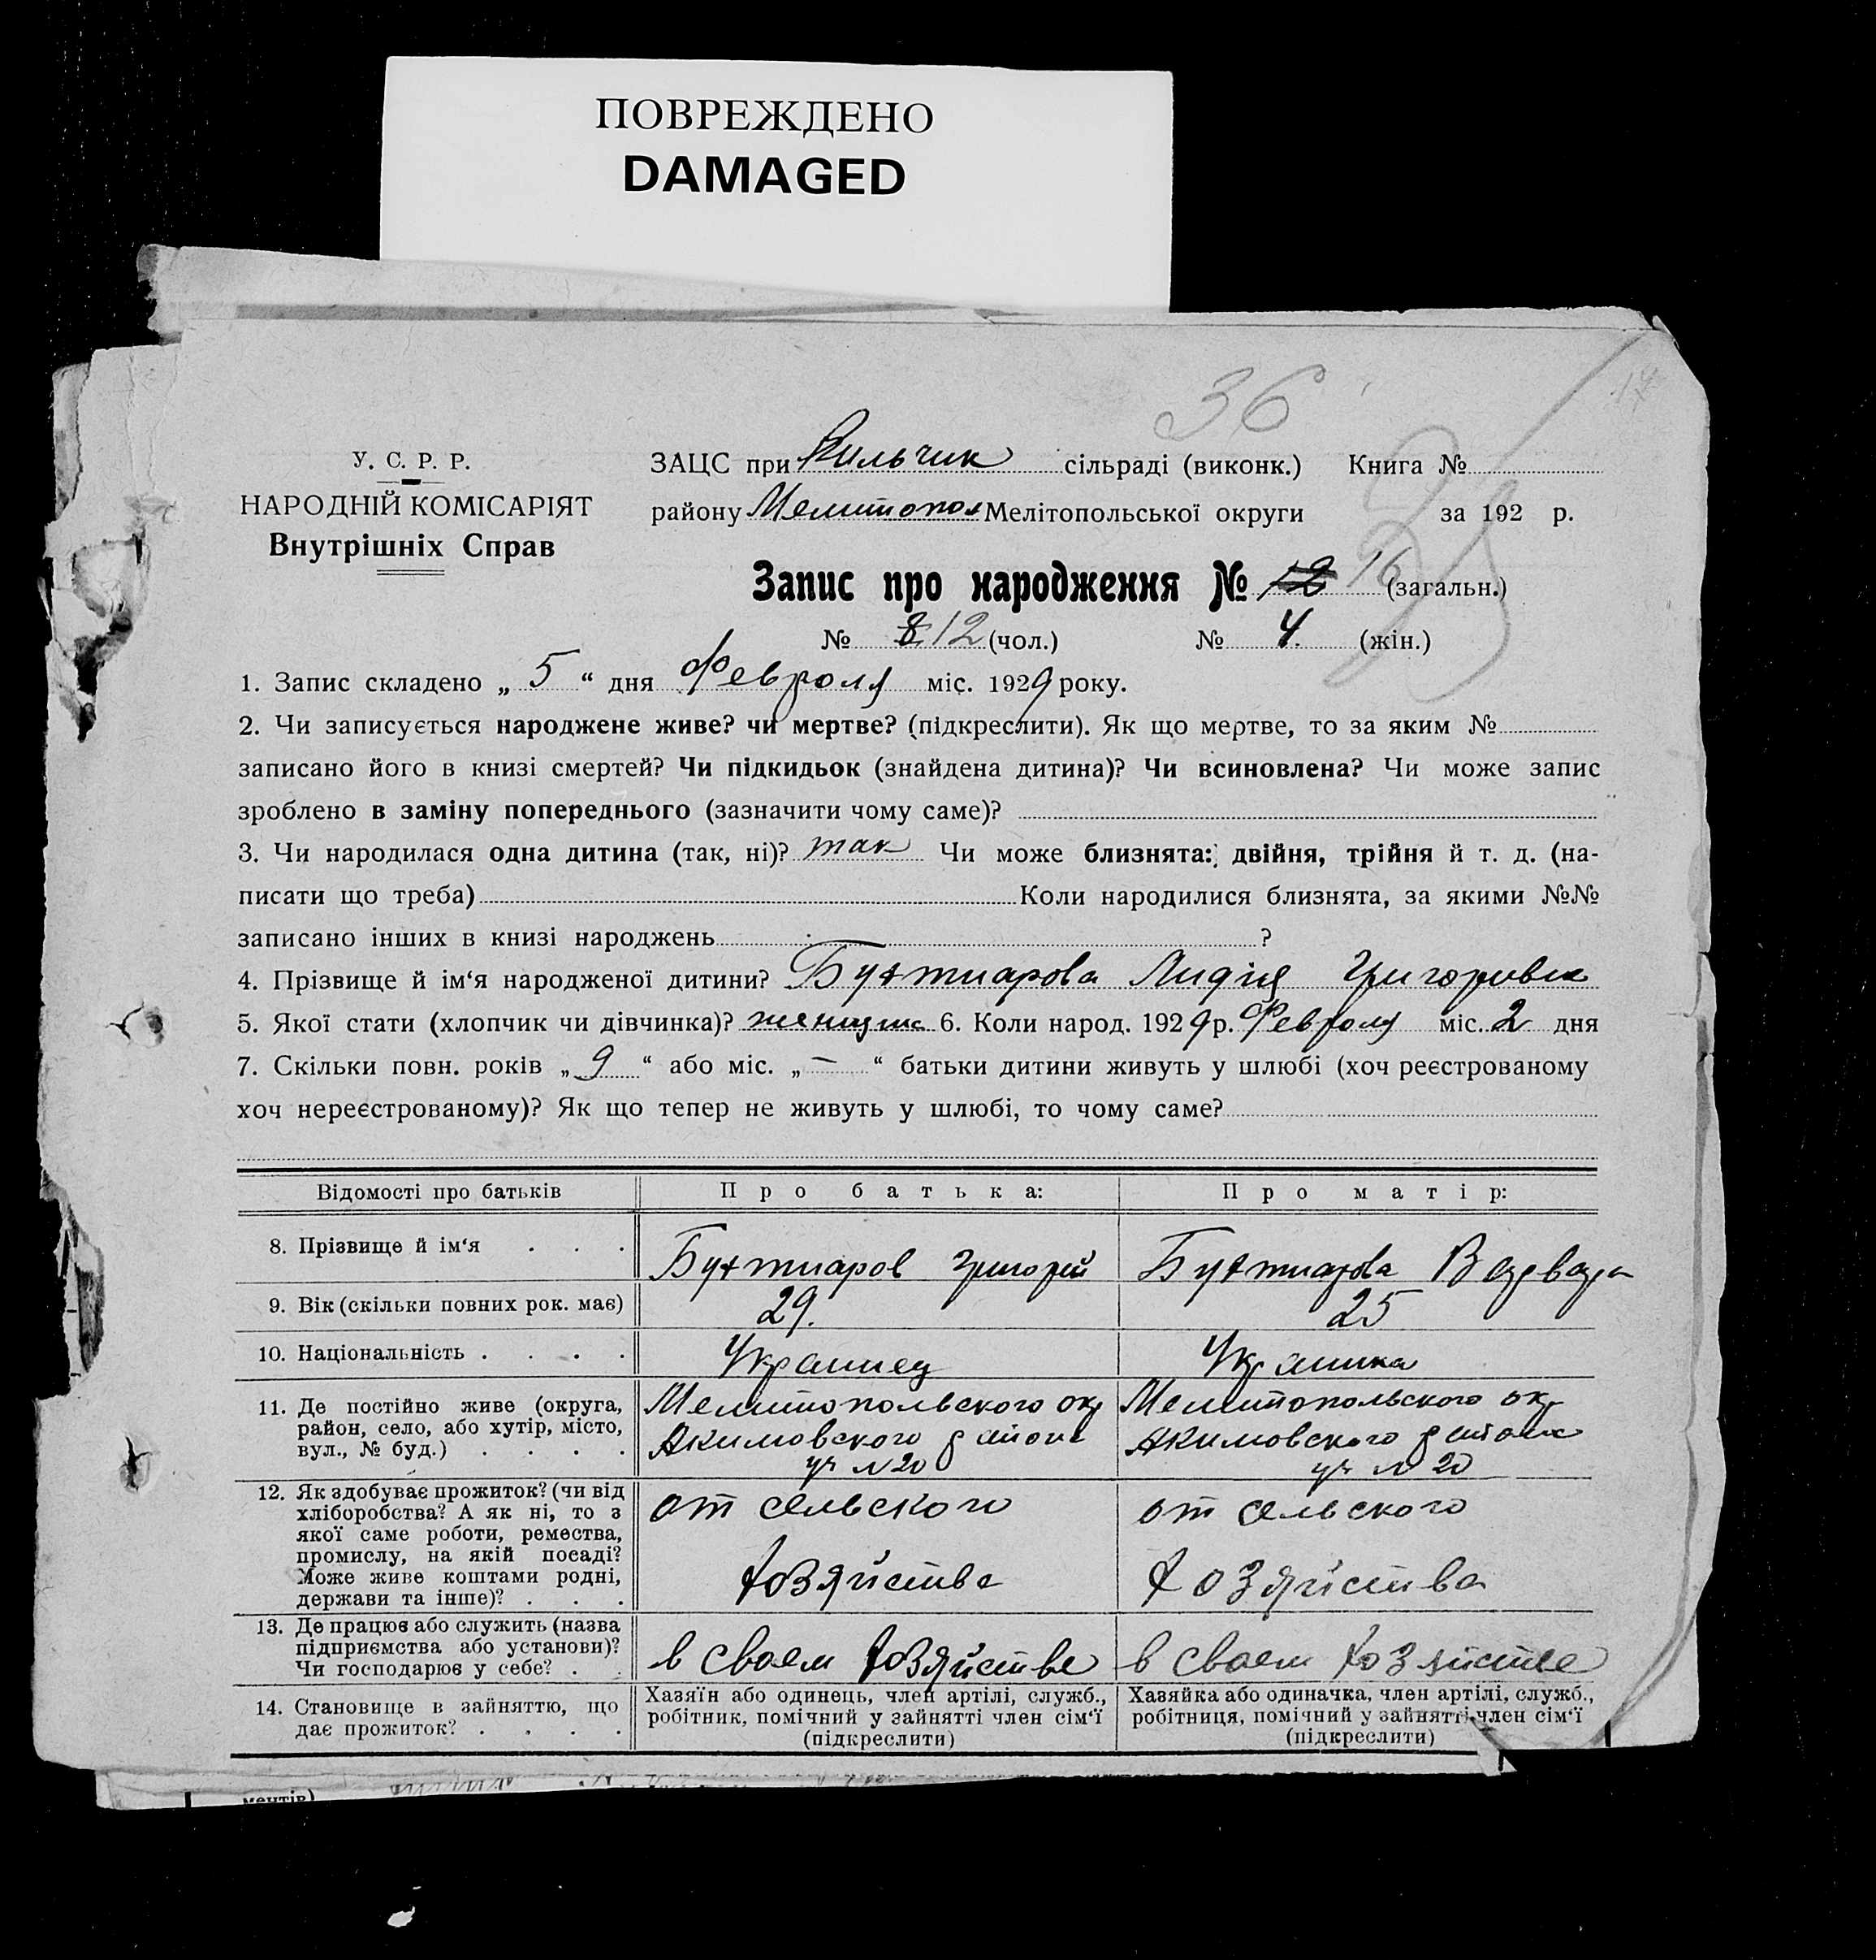 ПОВРЕЖДЕНО
DAMAGED
36
17
У. С. Р. Р.
НАРОДНІЙ КОМІСАРІЯТ
Внутрішніх Справ
ЗАЦС при Вильчик сільраді (виконк.) Книга №
району Мелитопол Мелітопольської округи за 192 р.
Запис про народження № 16 (загальн.)
№ 8 12 (чол.) № 4. (жін.)
1. Запис складено „ 5 “ дня Февроля міс. 1929 року.
2. Чи записується народжене живе? чи мертве? (підкреслити). Як що мертве, то за яким №
записано його в книзі смертей? Чи підкидьок (знайдена дитина)? Чи всиновлена? Чи може запис
зроблено в заміну попереднього (зазначити чому саме)?
3. Чи народилася одна дитина (так, ні)? так Чи може близнята: двійня, трійня й т. д. (на-
писати що треба) Коли народилися близнята, за якими №№
записано інших в книзі народжень ?
4. Прізвище й ім‘я народженої дитини? Бухтиарова Лидия Григоривна
5. Якої стати (хлопчик чи дівчинка)? 6. Коли народ. 1929 р. Февроля міс. 2 дня
7. Скільки повн. років „ 9 “ або міс. „ — “ батьки дитини живуть у шлюбі (хоч реєстрованому
хоч нереєстрованому)? Як що тепер не живуть у шлюбі, то чому саме?
Відомості про батьків Про батька: Про матір:
8. Прізвище й ім‘я . . . Бухтиаров Григорий Бухтиарова Варвара
9. Вік (скільки повних рок. має) 29. 25
10. Національність . . . . Украинец Украинка
11. Де постійно живе (округа, район, село, або хутір, місто, вул., № буд.) . . . .
Мелитопольского окр Мелитопольского окр
Акимовского района Акимовского района
уч N 20 уч N 20
12. Як здобуває прожиток? (чи від хліборобства? А як ні, то з якої саме роботи, ремества, промислу, на якій посаді? Може живе коштами родні, держави та інше)? . . .
от сельского от сельского
хозяйства хозяйства
13. Де працює або служить (назва підприємства або установи)? Чи господарює у себе? . .
в своем хозяйстве в своем хозяйстве
14. Становище в зайняттю, що дає прожиток? . . . .
Хазяїн або одинець, член артілі, служб., робітник, помічний у зайнятті член сім‘ї (підкреслити)
Хазяйка або одиначка, член артілі, служб., робітниця, помічний у зайнятті член сім‘ї (підкреслити)
ментів)